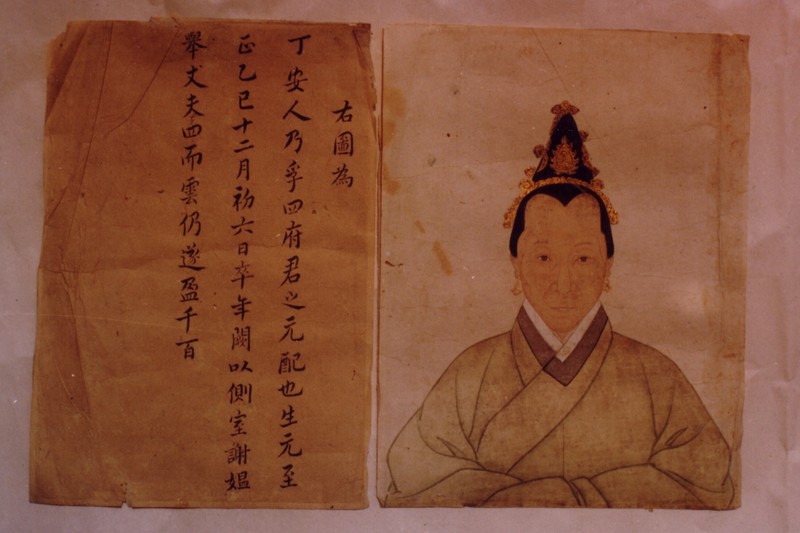 右圖為
丁安人乃孚四府君之元配也生元至
正乙巳十二月初六日卒年闕以側室謝媪
舉丈夫四而雲仍遂盈千百